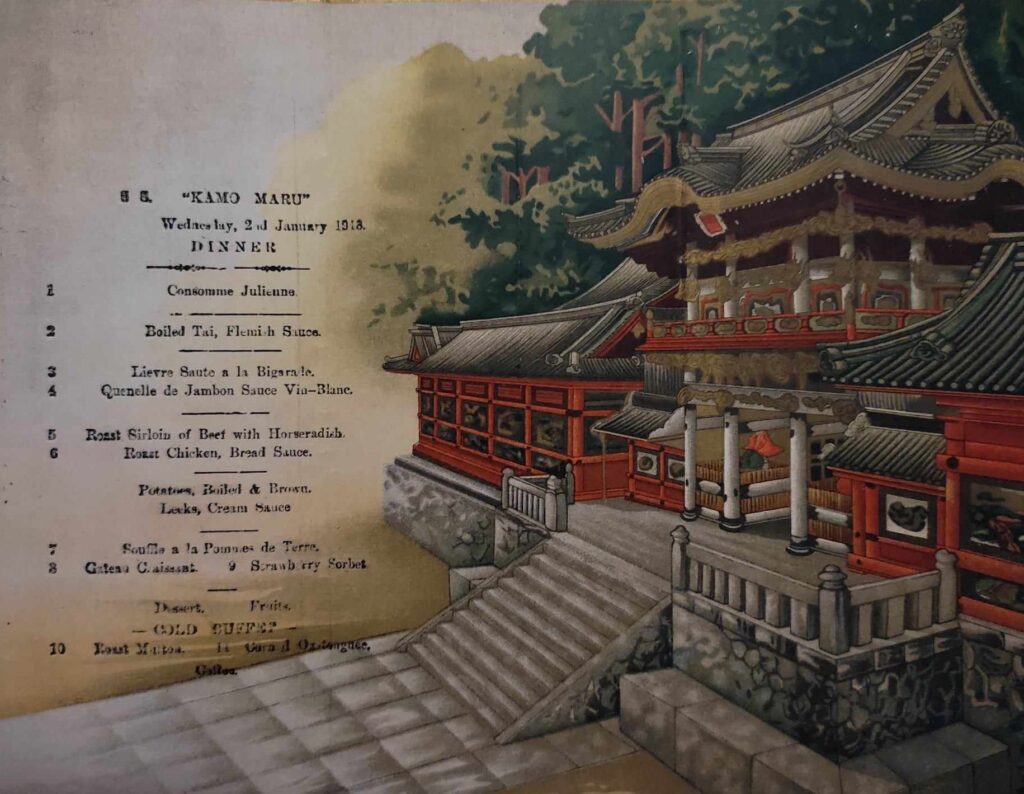 S S. "KAMO MARU"
Wednesday, 2nd January 1918.
DINNER
1 Consomme Julienne.
2 Boiled Tai, Flemish Sauce.
3 Lievre Saute a la Bigarade.
4 Quenelle de Jambon Sauce Vin-Blanc.
5 Roast Sirloin of Beef with Horseradish.
6 Roast Chicken, Bread Sauce.
Potatoes, Boiled & Brown.
Leeks, Cream Sauce
7 Souffle a la Pommes de Terre.
8 Gateau 9 Strawberry Sorbet
Dessert. Fruits.
— COLD BUFFET —
10 Roast Mutton. 11 Corned Ox-tongue.
Coffee.